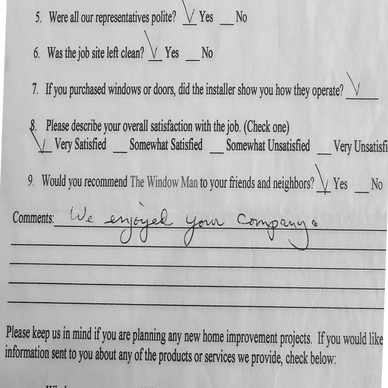 5. Were all our representatives polite? √ Yes __ No
6. Was the job site left clean? √ Yes __ No
7. If you purchased windows or doors, did the installer show you how they operate? √
8. Please describe your overall satisfaction with the job. (Check one)
√ Very Satisfied __ Somewhat Satisfied __ Somewhat Unsatisfied __ Very Unsatisfi
9. Would you recommend The Window Man to your friends and neighbors? √ Yes __ No
Comments: We enjoyed your company.
Please keep us in mind if you are planning any new home improvement projects. If you would like
information sent to you about any of the products or services we provide, check below: